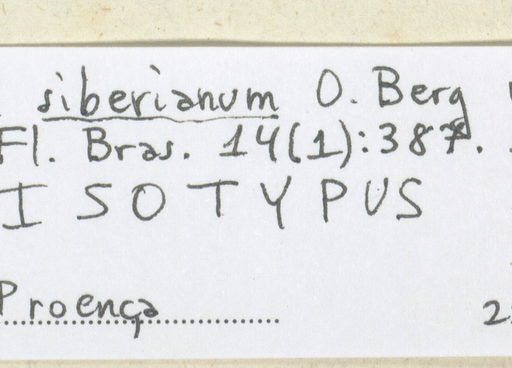 siberianum O. Berg
Fl. Bras. 14(1):387.
ISOTYPUS
Proença